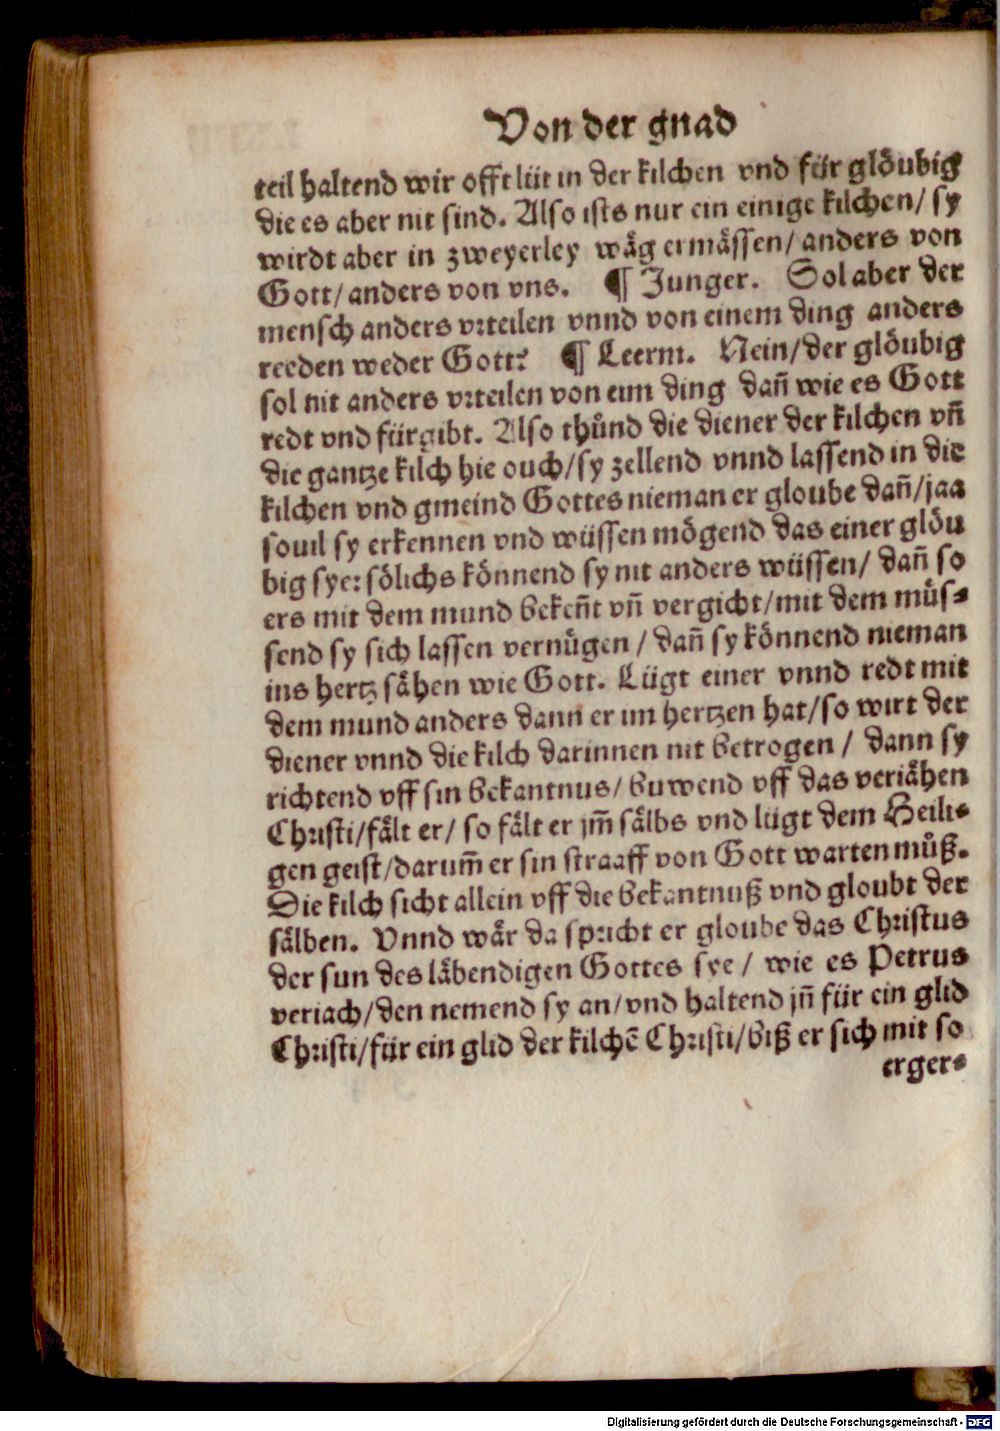 Von der gnad
teil haltend wir offt lüt in der kilchen vnd für glöubig
die es aber nit sind. Also ists nur ein einige kilchen/ sy
wirdt aber in zweyerley wäg ermässen/ anders von
Gott/ anders von vns. ¶ Junger. Sol aber der
mensch anders vrteilen vnnd von einem ding anders
reeden weder Gott? ¶ Leerm. Nein/ der glöubig
sol nit anders vrteilen von eim ding dañ wie es Gott
redt vnd fürgibt. Also thůnd die diener der kilchen vñ
die gantze kilch hie ouch/ sy zellend vnnd lassend in die
kilchen vnd gmeind Gottes nieman er gloube dañ/ jaa
souil sy erkennen vnd wüssen mögend das einer glöu
big sye: sölichs könnend sy nit anders wüssen/ dañ so
ers mit dem mund bekeñt vñ vergicht/ mit dem müs⸗
send sy sich lassen vernügen/ dañ sy könnend nieman
ins hertz sähen wie Gott. Lügt einer vnnd redt mit
dem mund anders dann er im hertzen hat/ so wirt der
diener vnnd die kilch darinnen nit betrogen/ dann sy
richtend vff sin bekantnus/ buwend vff das veriähen
Christi/ fält er/ so fält er jm̃ sälbs vnd lügt dem Heili⸗
gen geist/ darum̃ er sin straaff von Gott warten můß.
Die kilch sicht allein vff die bekantnuß vnd gloubt der
sälben. Vnnd wär da spricht er gloube das Christus
der sun des läbendigen Gottes sye/ wie es Petrus
veriach/ den nemend sy an/ vnd haltend jñ für ein glid
Christi/ für ein glid der kilchẽ Christi/ biß er sich mit so
erger⸗
Digitalisierung gefördert durch die Deutsche Forschungsgemeinschaft - DFG